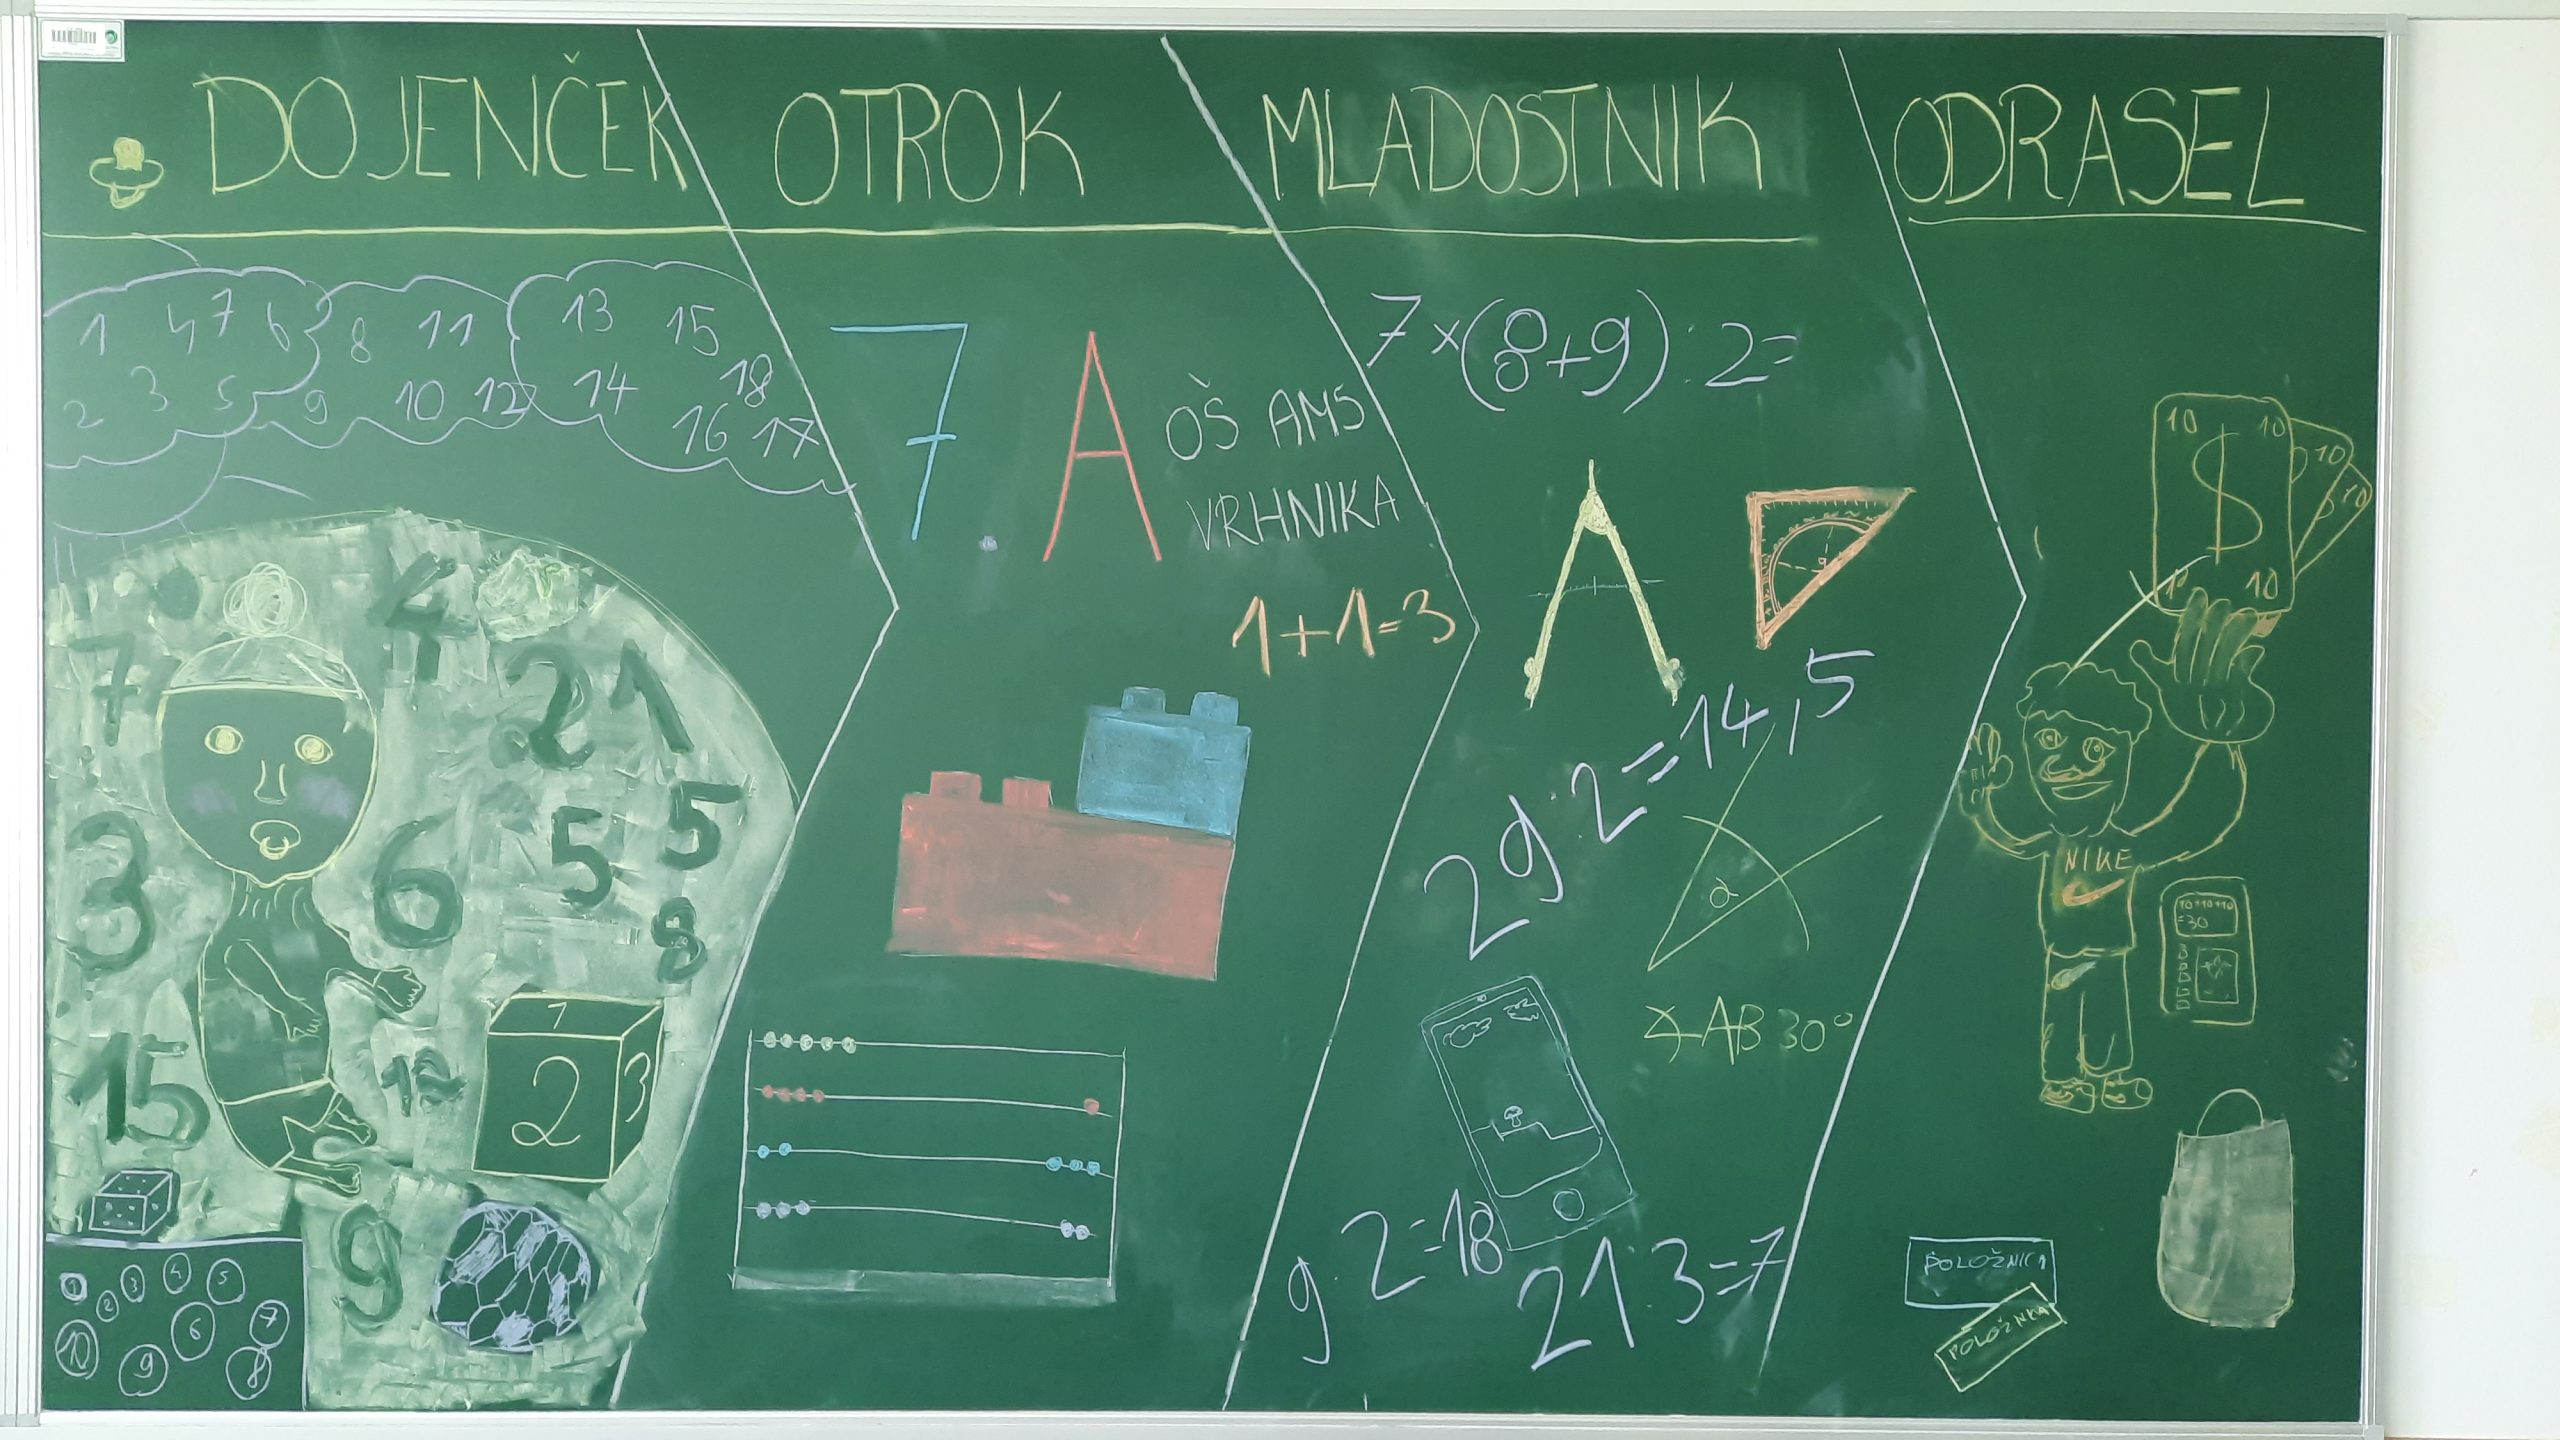 DOJENČEK
OTROK
MLADOSTNIK
ODRASEL
1 4 7 6
2 3 5
8 11
9 10 12
13 15
14 18
16 17
7
4
21
3
6
5
5
8
15
12
1
2
3
9
1 2 3 4 5
6 7
10 9 8
7. A
OŠ AMS
VRHNIKA
1+1=3
7×(8+9):2=
29:2=14,5
α
∡AB 30°
9·2=18
21:3=7
10 10
$
10 10
10
10
NIKE
10+10+10
=30
POLOŽNICA
POLOŽNICA